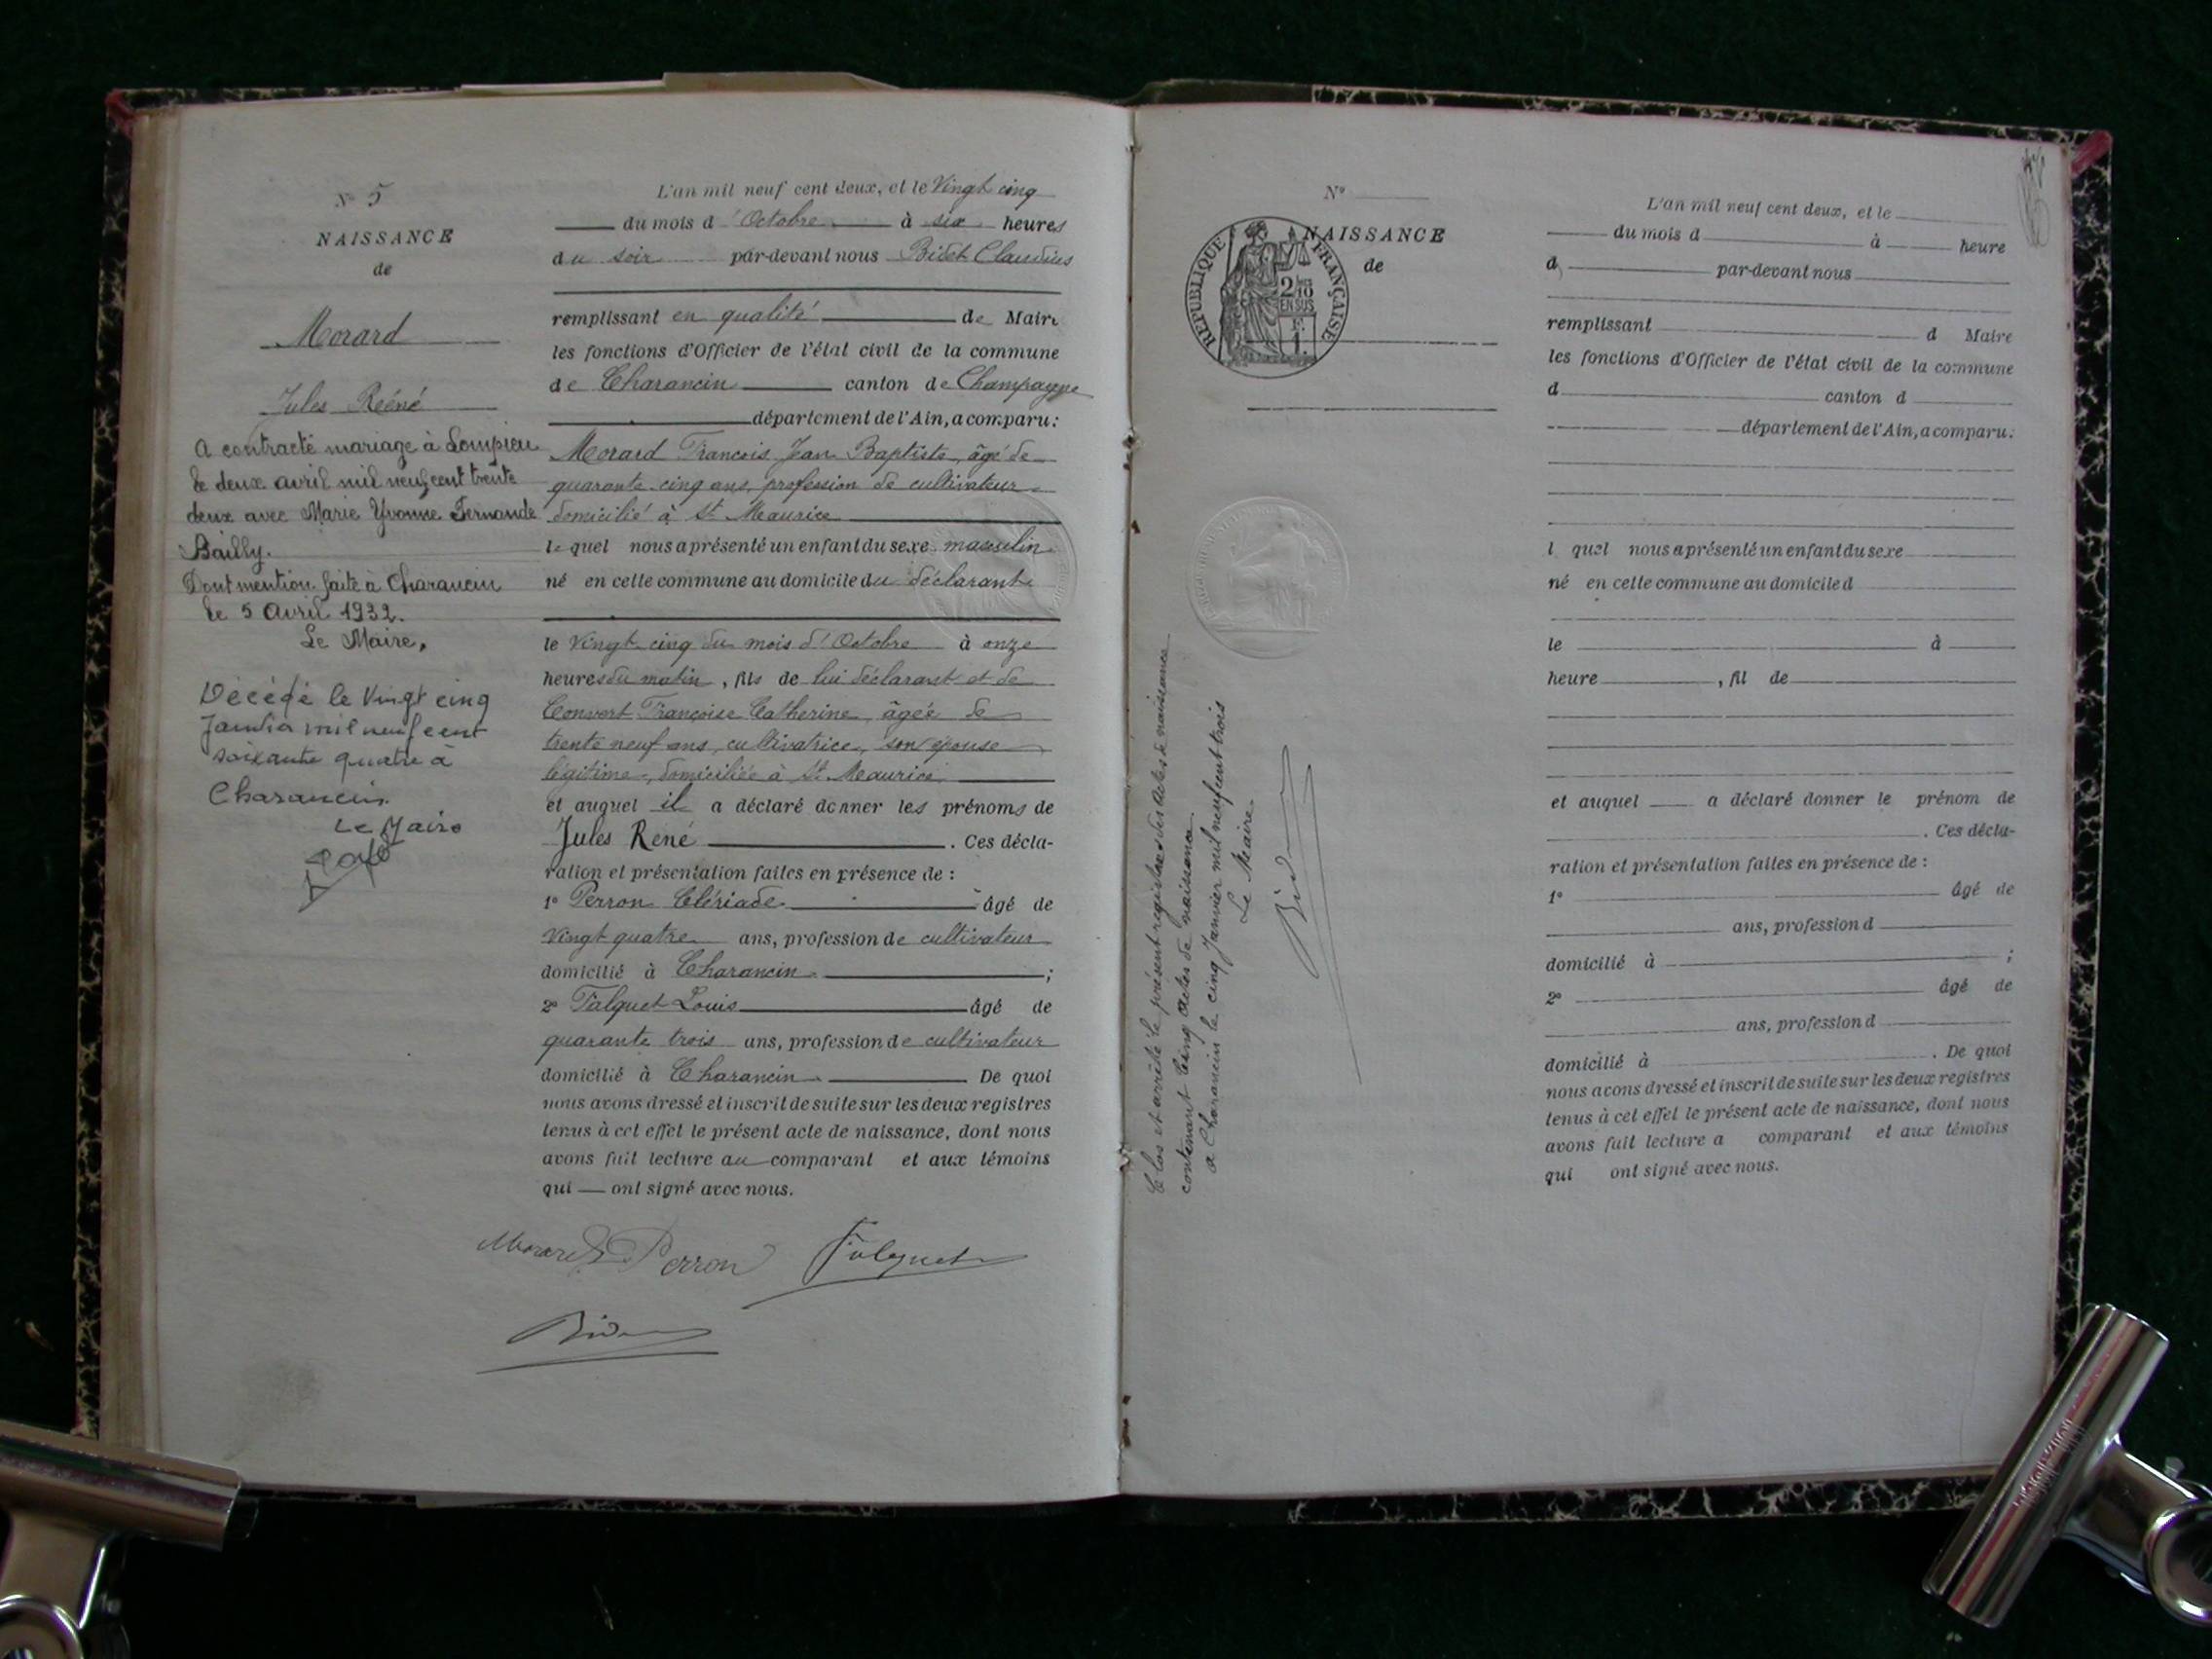 N° 5
NAISSANCE
de
Morard
Jules Réené
A contracté mariage à Lompieu
le deux avril mil neuf cent trente
deux avec Marie Yvonne Fernande
Bailly.
Dont mention faite à Charancin
le 5 Avril 1932.
Le Maire,
Décédé le Vingt cinq
Janvier mil neuf cent
soixante quatre à
Charancin
Le Maire
L'an mil neuf cent deux, et le Vingt cinq
du mois d'Octobre à six heures
du soir par-devant nous Bidet Claudius
remplissant en qualité de Maire
les fonctions d'Officier de l'état civil de la commune
de Charancin canton de Champagne
département de l'Ain, a comparu:
Morard François Jean Baptiste, âgé de
quarante cinq ans, profession de cultivateur
domicilié à St Maurice
lequel nous a présenté un enfant du sexe masculin
né en cette commune au domicile du déclarant
le Vingt cinq du mois d'Octobre à onze
heures du matin, fils de lui déclarant et de
Convert Françoise Catherine, âgée de
trente neuf ans, cultivatrice, son épouse
légitime, domiciliée à St Maurice
et auquel il a déclaré donner les prénoms de
Jules René. Ces décla-
ration et présentation faites en présence de :
1° Perron Clériade âgé de
Vingt quatre ans, profession de cultivateur
domicilié à Charancin ;
2° Falquet Louis âgé de
quarante trois ans, profession de cultivateur
domicilié à Charancin. De quoi
nous avons dressé et inscrit de suite sur les deux registres
tenus à cet effet le présent acte de naissance, dont nous
avons fait lecture au comparant et aux témoins
qui — ont signé avec nous.
Morard Perron Falquet
Bidet
Clos et arrêté le présent registre des actes de naissance
contenant cinq actes de naissance
à Charancin le cinq Janvier mil neuf cent trois
Le Maire
Bidet
N°
REPUBLIQUE FRANÇAISE
2/10
EN SUS
NAISSANCE
de
L'an mil neuf cent deux, et le
du mois d à heure
d par-devant nous
remplissant d Maire
les fonctions d'Officier de l'état civil de la commune
d canton d
département de l'Ain, a comparu:
l quel nous a présenté un enfant du sexe
né en cette commune au domicile d
le à
heure , fil de
et auquel a déclaré donner le prénom de
. Ces décla-
ration et présentation faites en présence de :
1° âgé de
ans, profession d
domicilié à ;
2° âgé de
ans, profession d
domicilié à . De quoi
nous avons dressé et inscrit de suite sur les deux registres
tenus à cet effet le présent acte de naissance, dont nous
avons fait lecture a comparant et aux témoins
qui ont signé avec nous.